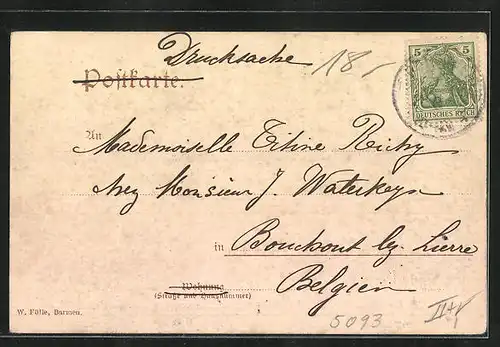 Drucksache 18-
Postkarte.
5 5
DEUTSCHES REICH
An Mademoiselle Titine Richy
chez Monsieur J. Waterkeyn
in Bouchout bz. Lierre
Wohnung
Belgien
(Straße und Hausnummer)
W. Fülle, Barmen.
5093